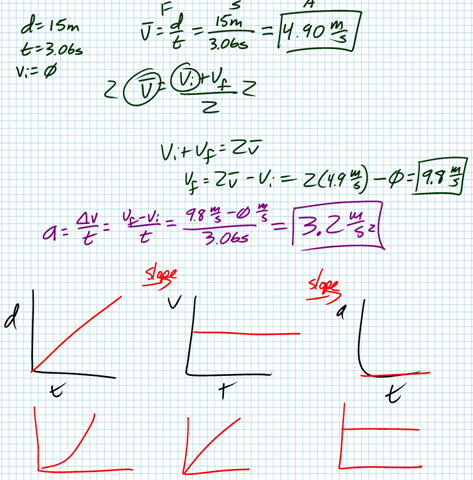 F S A
d = 15m
t = 3.06s
Vi = ø
V̄ = d/t = 15m/3.06s = 4.90 m/s
2 V̄ = Vi + Vf / 2 2
Vi + Vf = 2V̄
Vf = 2V̄ - Vi = 2(4.9 m/s) - ø = 9.8 m/s
a = Δv/t = Vf - Vi/t = 9.8 m/s - ø m/s / 3.06s = 3.2 m/s²
slope slope
d v a
t t t